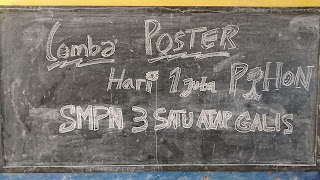 Lomba POSTER
Hari 1 Juta POHON
SMPN 3 SATU ATAP GALIS